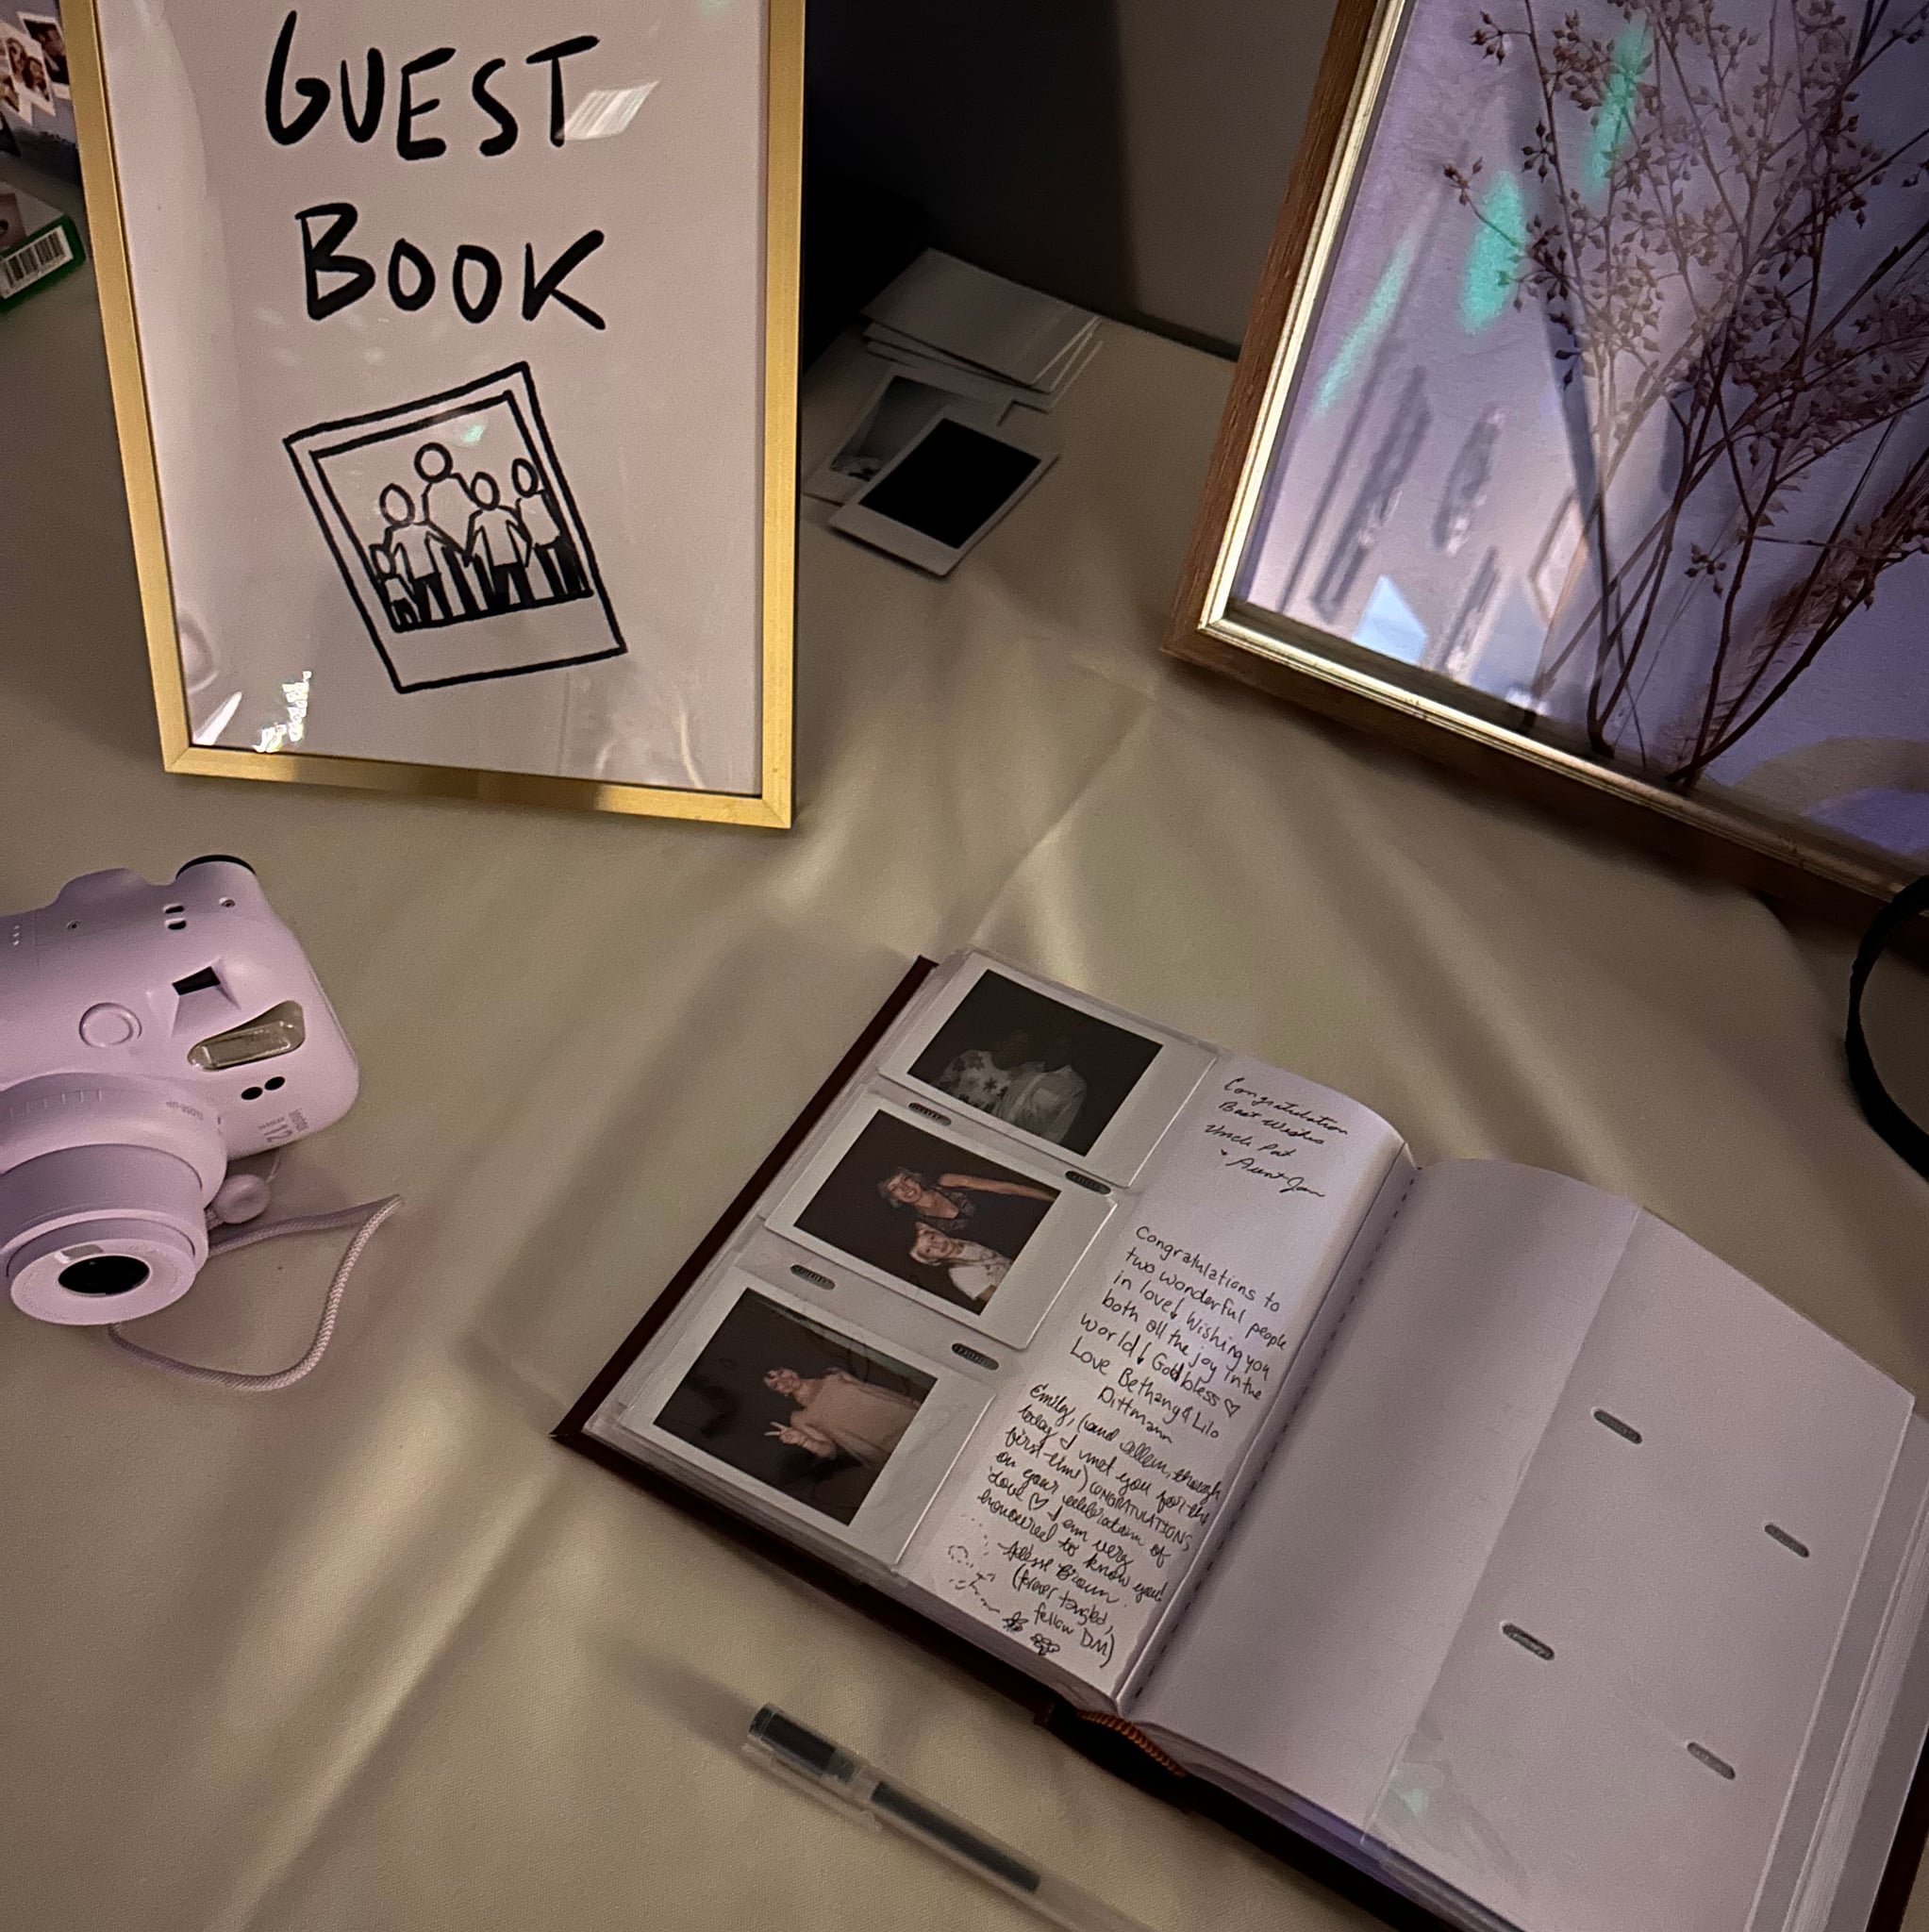 GUEST
BOOK
instax
mini 12
Congratulation
Best Wishes
Uncle Pat
+ Aunt Jan
Congratulations to
two wonderful people
in love! Wishing you
both all the joy in the
world! God bless ♡
Love Bethany & Lilo
Dittmann
Emily, (and Allem, though
today I met you for the
first-time) CONGRATULATIONS
on your celebration of
love ♡ I am very
honoured to know you!
Brown
(forever tangled,
fellow DM)